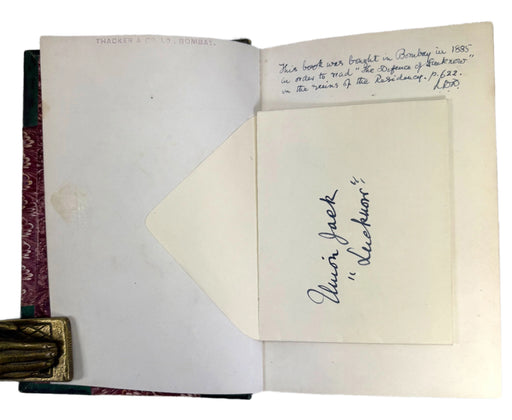 THACKER & CO. LD., BOMBAY.
This book was bought in Bombay in 1885
in order to read "The Defence of Lucknow"
in the ruins of the Residency. p. 622.
Union Jack
"Lucknow"